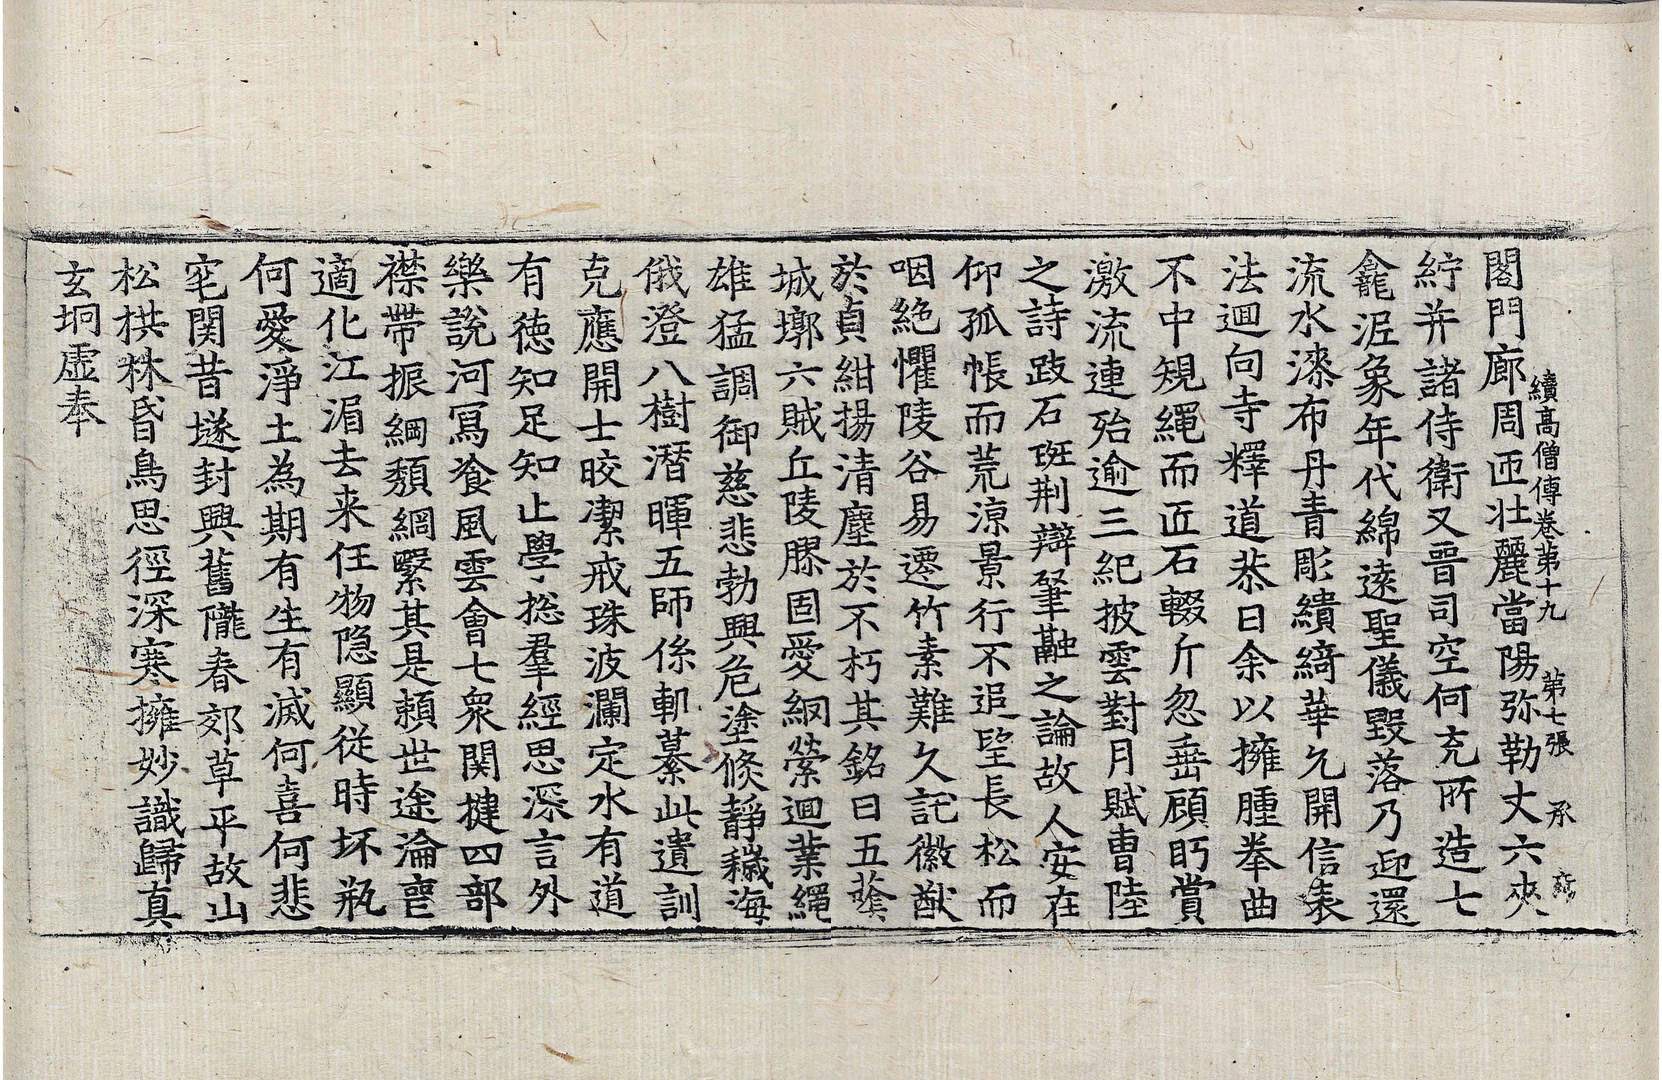 續高僧傳卷第十九 第七張 承
閣門廊周匝壯麗當陽弥勒丈六夾
紵并諸侍衛又晉司空何充所造七
龕泥象年代綿遠聖儀毀落乃迎還
流水漆布丹青彫繢綺華允開信表
法迴向寺釋道恭曰余以擁腫拳曲
不中規繩而匠石輟斤忽垂顧眄賞
激流連殆逾三紀披雲對月賦曹陸
之詩跂石班荆辯肇融之論故人安在
仰孤帳而荒涼景行不追望長松而
咽絶懼陵谷易遷竹素難久託徽猷
於貞紺揚清塵於不朽其銘曰五蔭
城墎六賊丘陵膠固愛網縈迴業繩
雄猛調御慈悲勃興危塗倐靜穢海
俄澄八樹潛暉五師係軌纂此遺訓
克應開士皎潔戒珠波瀾定水有道
有徳知足知止學揔羣經思深言外
樂說河冩飡風雲會七衆関揵四部
襟帶振綱頽綱繄其是頼世途淪喪
適化江湄去来任物隐顯從時坏瓶
何愛淨土為期有生有滅何喜何悲
窀関昔墜封興舊隴春郊草平故山
松拱秣昏鳥思徑深寒擁妙識歸真
玄坰虛奉